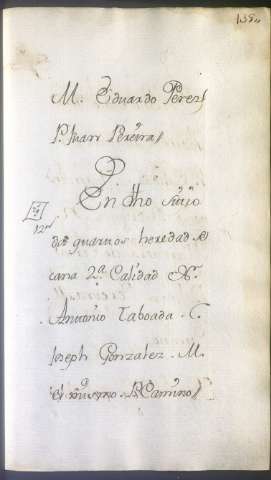 M. Eduardo Perez
P. Juan Pereira
En dho sitio
dos quartos heredad se
cana 2ª Calidad
Antonio Taboada. C.
Joseph Gonzalez. M.
el mismo. P. Camino